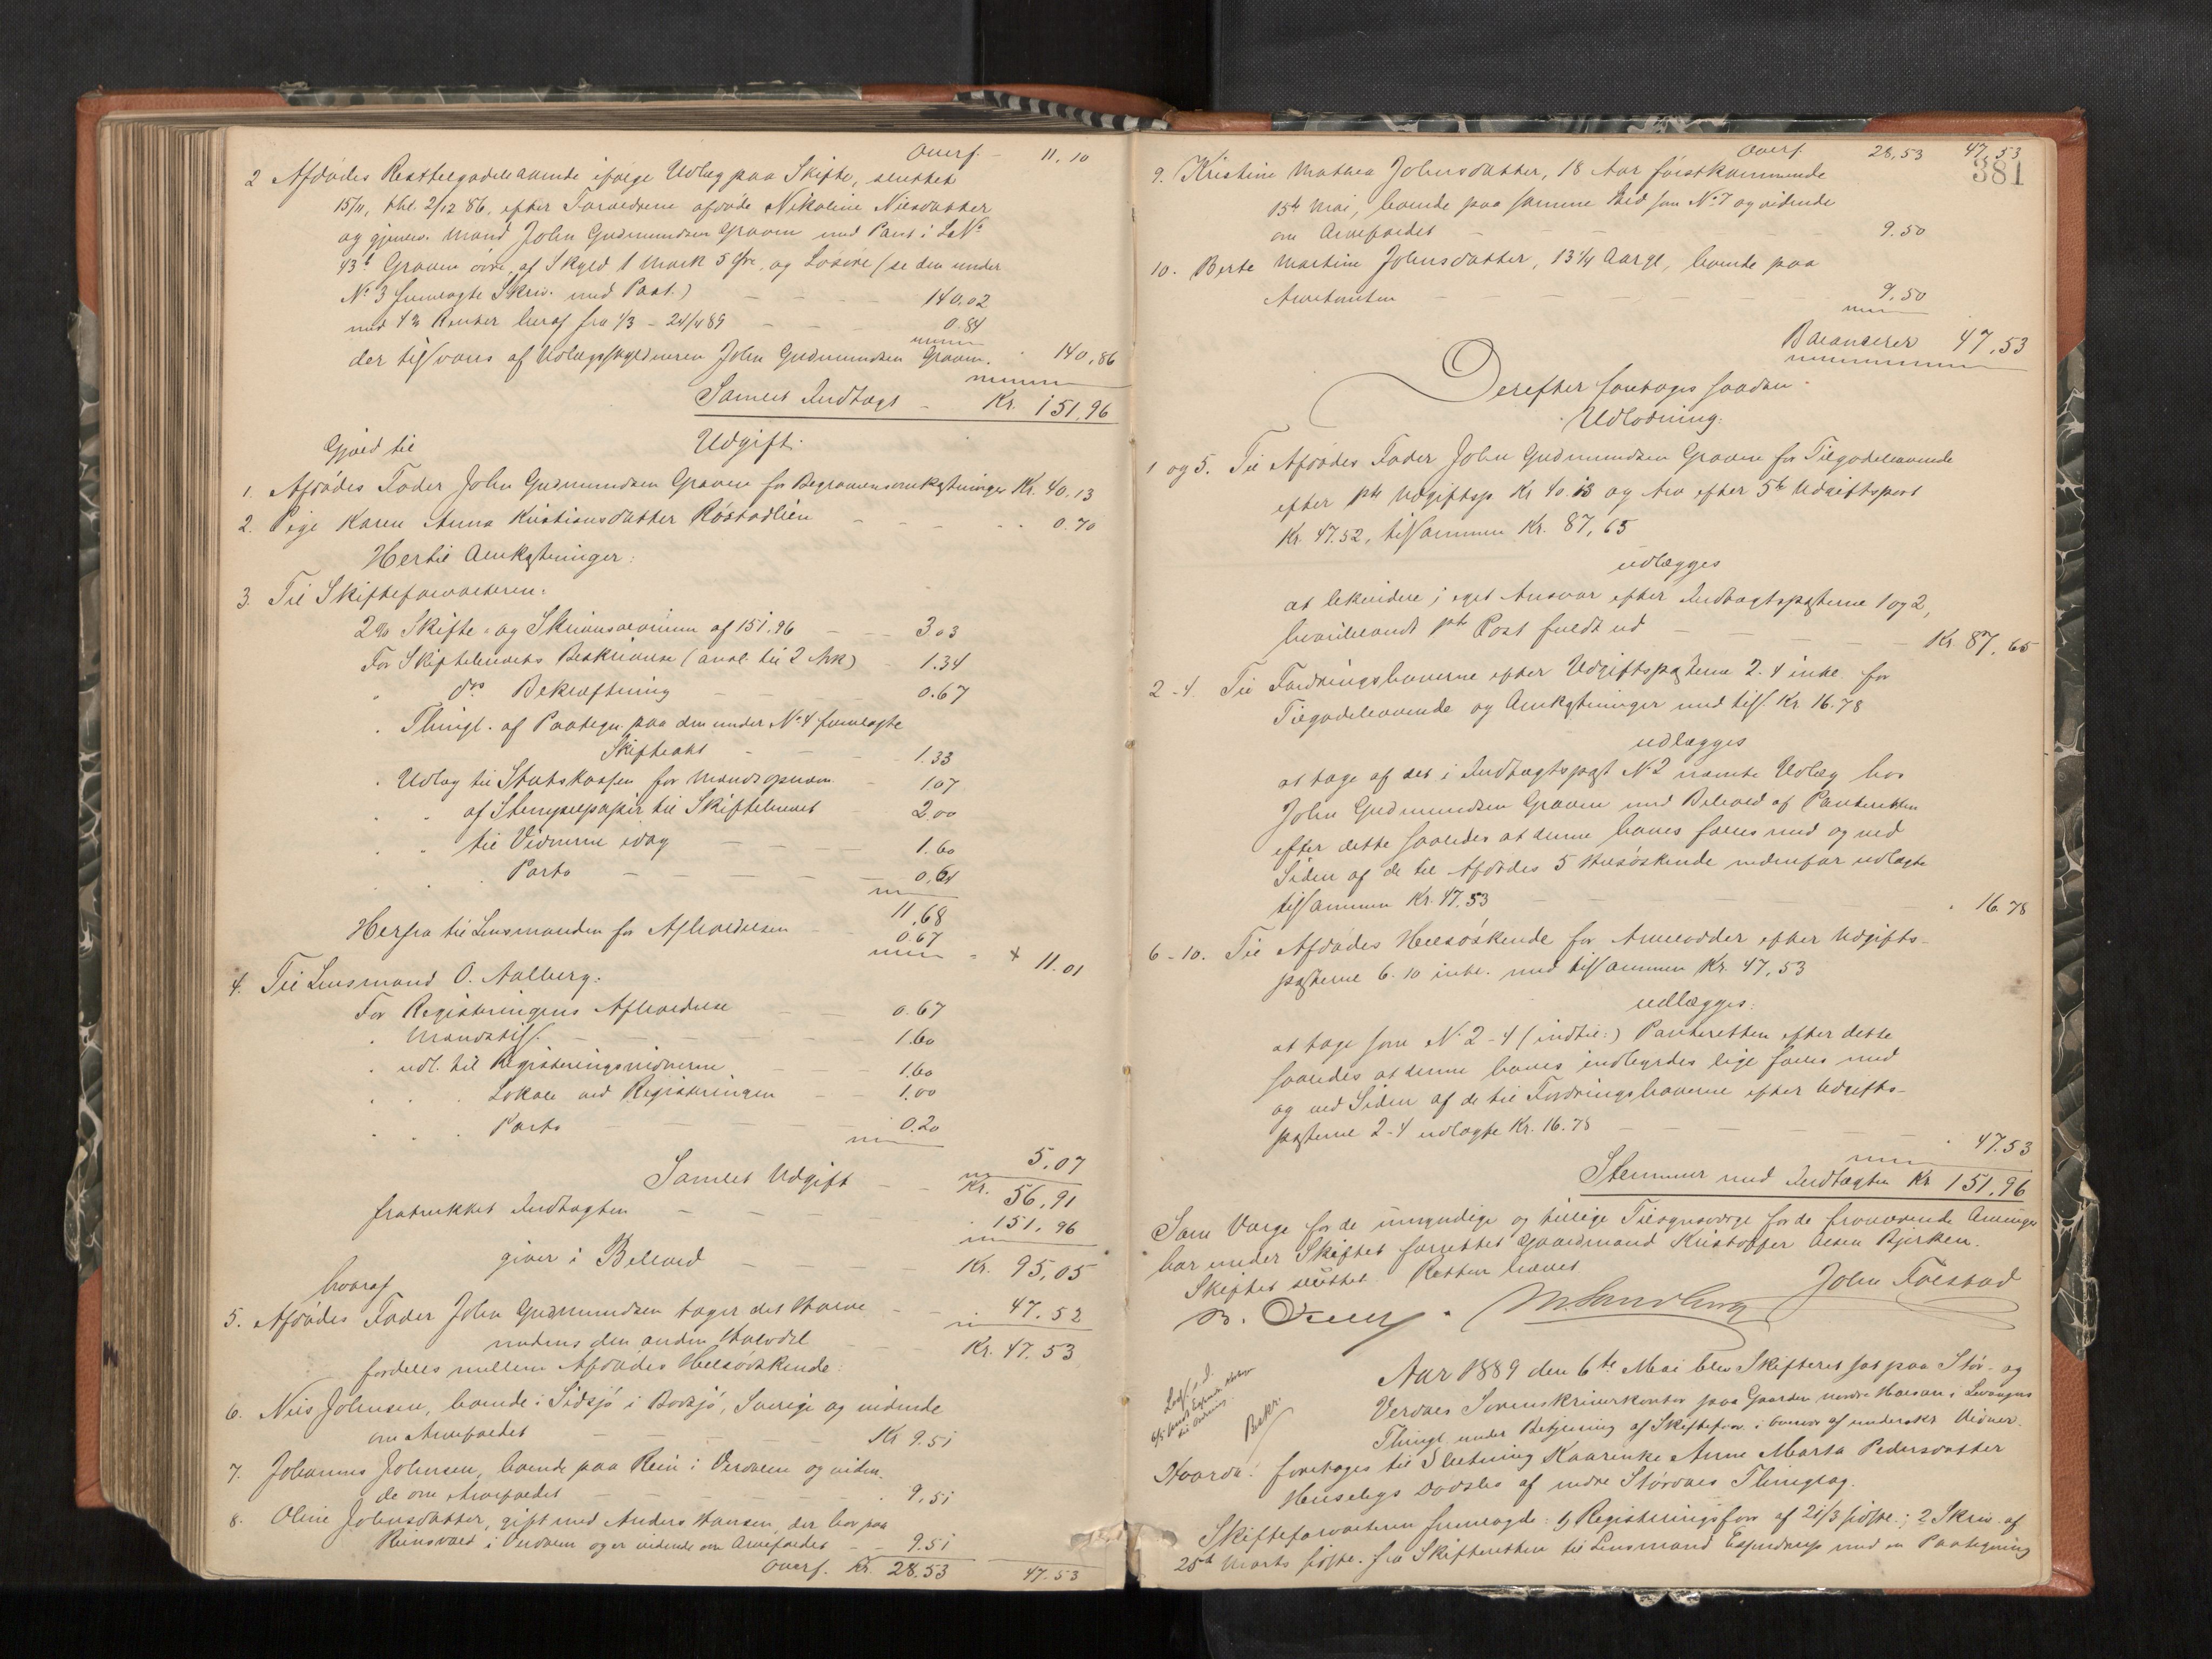 Overf. - 11,10
2 Afdødes Resttilgodehavende ifølge Udlæg paa Skifte, sluttet
15/11, thl. 2/12 86, efter Forældrene afdøde Nikoline Nilsdatter
og gjenlev. Mand John Gudmundsen Graven med Pant i LNo
43b Graven øvre, af Skyld 1 Mark 5 Øre, og Løsøre (se den under
No 3 fremlagte Skriv. med Paat.) - - - 140.02
med 4% Renter heraf fra 1/3 - 24/4 89 - - 0.84
der tilsvares af Udlægsskyldneren John Gudmundsen Graven. " 140,86
Samlet Indtægt - Kr. 151,96
Gjæld til Udgift.
1. Afdødes Fader John Gudmundsen Graven for Begravelsesomkostninger Kr. 40,13
2. Pige Karen Anna Kristiansdatter Røstadlien - - - 0.70
Hertil Omkostninger:
3. Til Skifteforvalteren:
2% Skifte- og Skriversalærium af 151.96 - - 3.03
For Skiftebrevets Beskrivelse (ansl. til 2 Ark) - 1.34
" do Bekræftning - - - 0.67
" Thingl. af Paategn. paa den under No 4 fremlagte
Skifteakt - - - 1.33
" Udlæg til Statskassen for Mandsopnævn. - 1.07
" " af Stempelpapir til Skiftebrevet - 2.00
" " til Vidnerne idag - - - 1.60
" " Porto - - - - 0,64
11,68
Herfra til Lensmanden for Afholdelsen - 0.67
" 11.01
4. Til Lensmand O. Aalberg:
For Registreringens Afholdelse - - 0.67
" Mandstils. - - - 1.60
" udl. til Registreringsvidnerne - - 1.60
" " " Lokale ved Registreringen - - 1,00
" " " Porto - - - - 0.20
5.07
Samlet Udgift - - Kr. 56,91
fratrukket Indtægten - - - " 151.96
giver i Behold - - - Kr. 95,05
hvoraf
5. Afdødes Fader John Gudmundsen tager det Halve - - " 47.52
medens den anden Halvdel - - Kr. 47.53
fordeles mellem Afdødes Helsøskende:
6. Nils Johnsen, boende i Sidsjø i Bodsjø, Sverige og vidende
om Arvefaldet - - - - Kr 9.51
7. Johannes Johnsen, boende paa Rein i Verdalen og viden-
de om Arvefaldet - - - - " 9.51
8. Oline Johnsdatter, gift med Anders Hansen, der bor paa
Reinsvald i Verdalen og er vidende om Arvefaldet - - 9.51
Overf. Kr. 28.53 47.53
Overf. 28,53 47,53
381
9. Kristine Mathea Johnsdatter, 18 Aar førstkommende
15de Mai, boende paa samme Sted som No 7 og vidende
om Arvefaldet - - - - 9.50
10. Berte Martine Johnsdatter, 13 1/4 Aargl, boende paa
Arvetomten - - - - 9,50
Balancerer 47,53
Derefter foretoges saadan
Udlodning.
1 og 5. Til Afdødes Fader John Gudmundsen Graven for Tilgodehavende
efter 1ste Udgiftsp. Kr 40.13 og Arv efter 5te Udgiftspost
Kr. 47.52, tilsammen Kr. 87,65
udlægges
at likvidere i eget Ansvar efter Indtægtsposterne 1 og 2,
hvoriblandt 1ste Post fuldt ud - - - Kr 87,65
2-4. Til Fordringshaverne efter Udgiftsposterne 2-4 inkl. for
Tilgodehavende og Omkostninger med tils. Kr. 16.78
udlægges
at tage af det i Indtægtspost No 2 nævnte Udlæg hos
John Gudmundsen Graven med Behold af Panteretten
efter dette saaledes at denne haves fælles med og ved
Siden af de til Afdødes 5 Helsøskende nedenfor udlagte
tilsammen Kr. 47.53 - - - - " 16.78
6-10. Til Afdødes Helsøskende for Arvelodder efter Udgifts-
posterne 6-10 inkl. med tilsammen Kr. 47,53
udlægges:
at tage som No 2-4 (indtil:) Panteretten efter dette
saaledes at denne haves indbyrdes lige fælles med
og ved Siden af de til Fordringshaverne efter Udgifts-
posterne 2-4 udlagte Kr. 16.78 - - - " 47.53
Stemmer med Indtægten Kr 151,96
Som Værge for de umyndige og tillige Tilsynsværge for de fraværende Arvinger
har under Skiftet forrettet Gaardmand Kristoffer Olsen Bjerken.
Skiftet sluttet. Retten hævet.
M Sandberg John Folstad
Aar 1889 den 6te Mai blev Skifteret sat paa Stør- og
Verdals Sorenskriverkontor paa Gaarden nordre Halsan i Levangers
Thingl. under Betjening af Skifteforv. i Overvær af underskr. Vidner.
Hvorda: foretoges til Slutning Kaarenke Anne Marta Pedersdatter
Huselyes Dødsbo af nedre Stördals Thinglag.
Bekr.
Skifteforvalteren fremlagde: 1) Registreringsforr. af 21/3 sidstl.; 2 Skriv. af
25de Marts sidstl. fra Skifteretten til Lensmand Espendrup med en Paategning